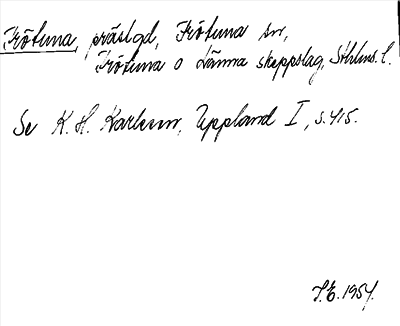 Frötuna, prästgd, Frötuna sn,
Frötuna o Länna skeppslag, Sthlms l.
Se K. H. Karlsson, Uppland I, s. 415.
1954.